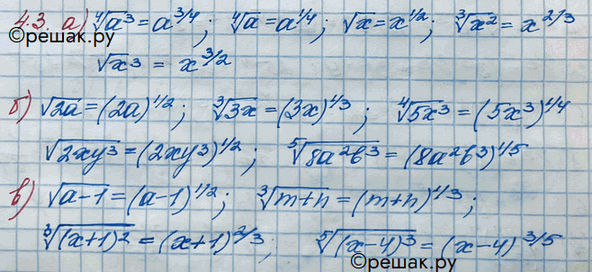 4.3. а) ⁴√a³ = a^3/4; ⁴√a = a^1/4; √x = x^1/2; ³√x² = x^2/3
©решак.ру
√x³ = x^3/2
б) √2a = (2a)^1/2; ³√3x = (3x)^1/3; ⁴√5x³ = (5x³)^1/4
√2xy³ = (2xy³)^1/2; ⁵√8a²b³ = (8a²b³)^1/5
в) √a-1 = (a-1)^1/2; ³√m+n = (m+n)^1/3;
³√(x+1)² = (x+1)^2/3; ⁵√(x-4)³ = (x-4)^3/5
©решак.ру